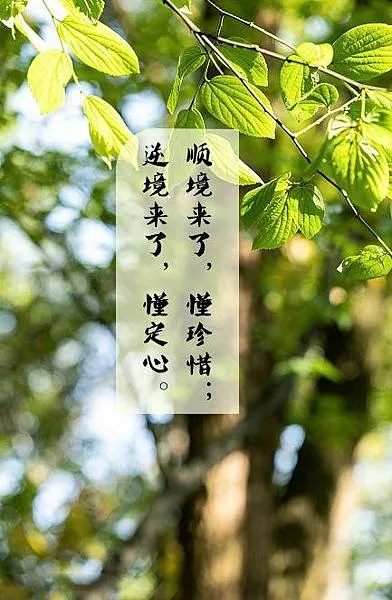 顺境来了，懂珍惜；
逆境来了，懂定心。